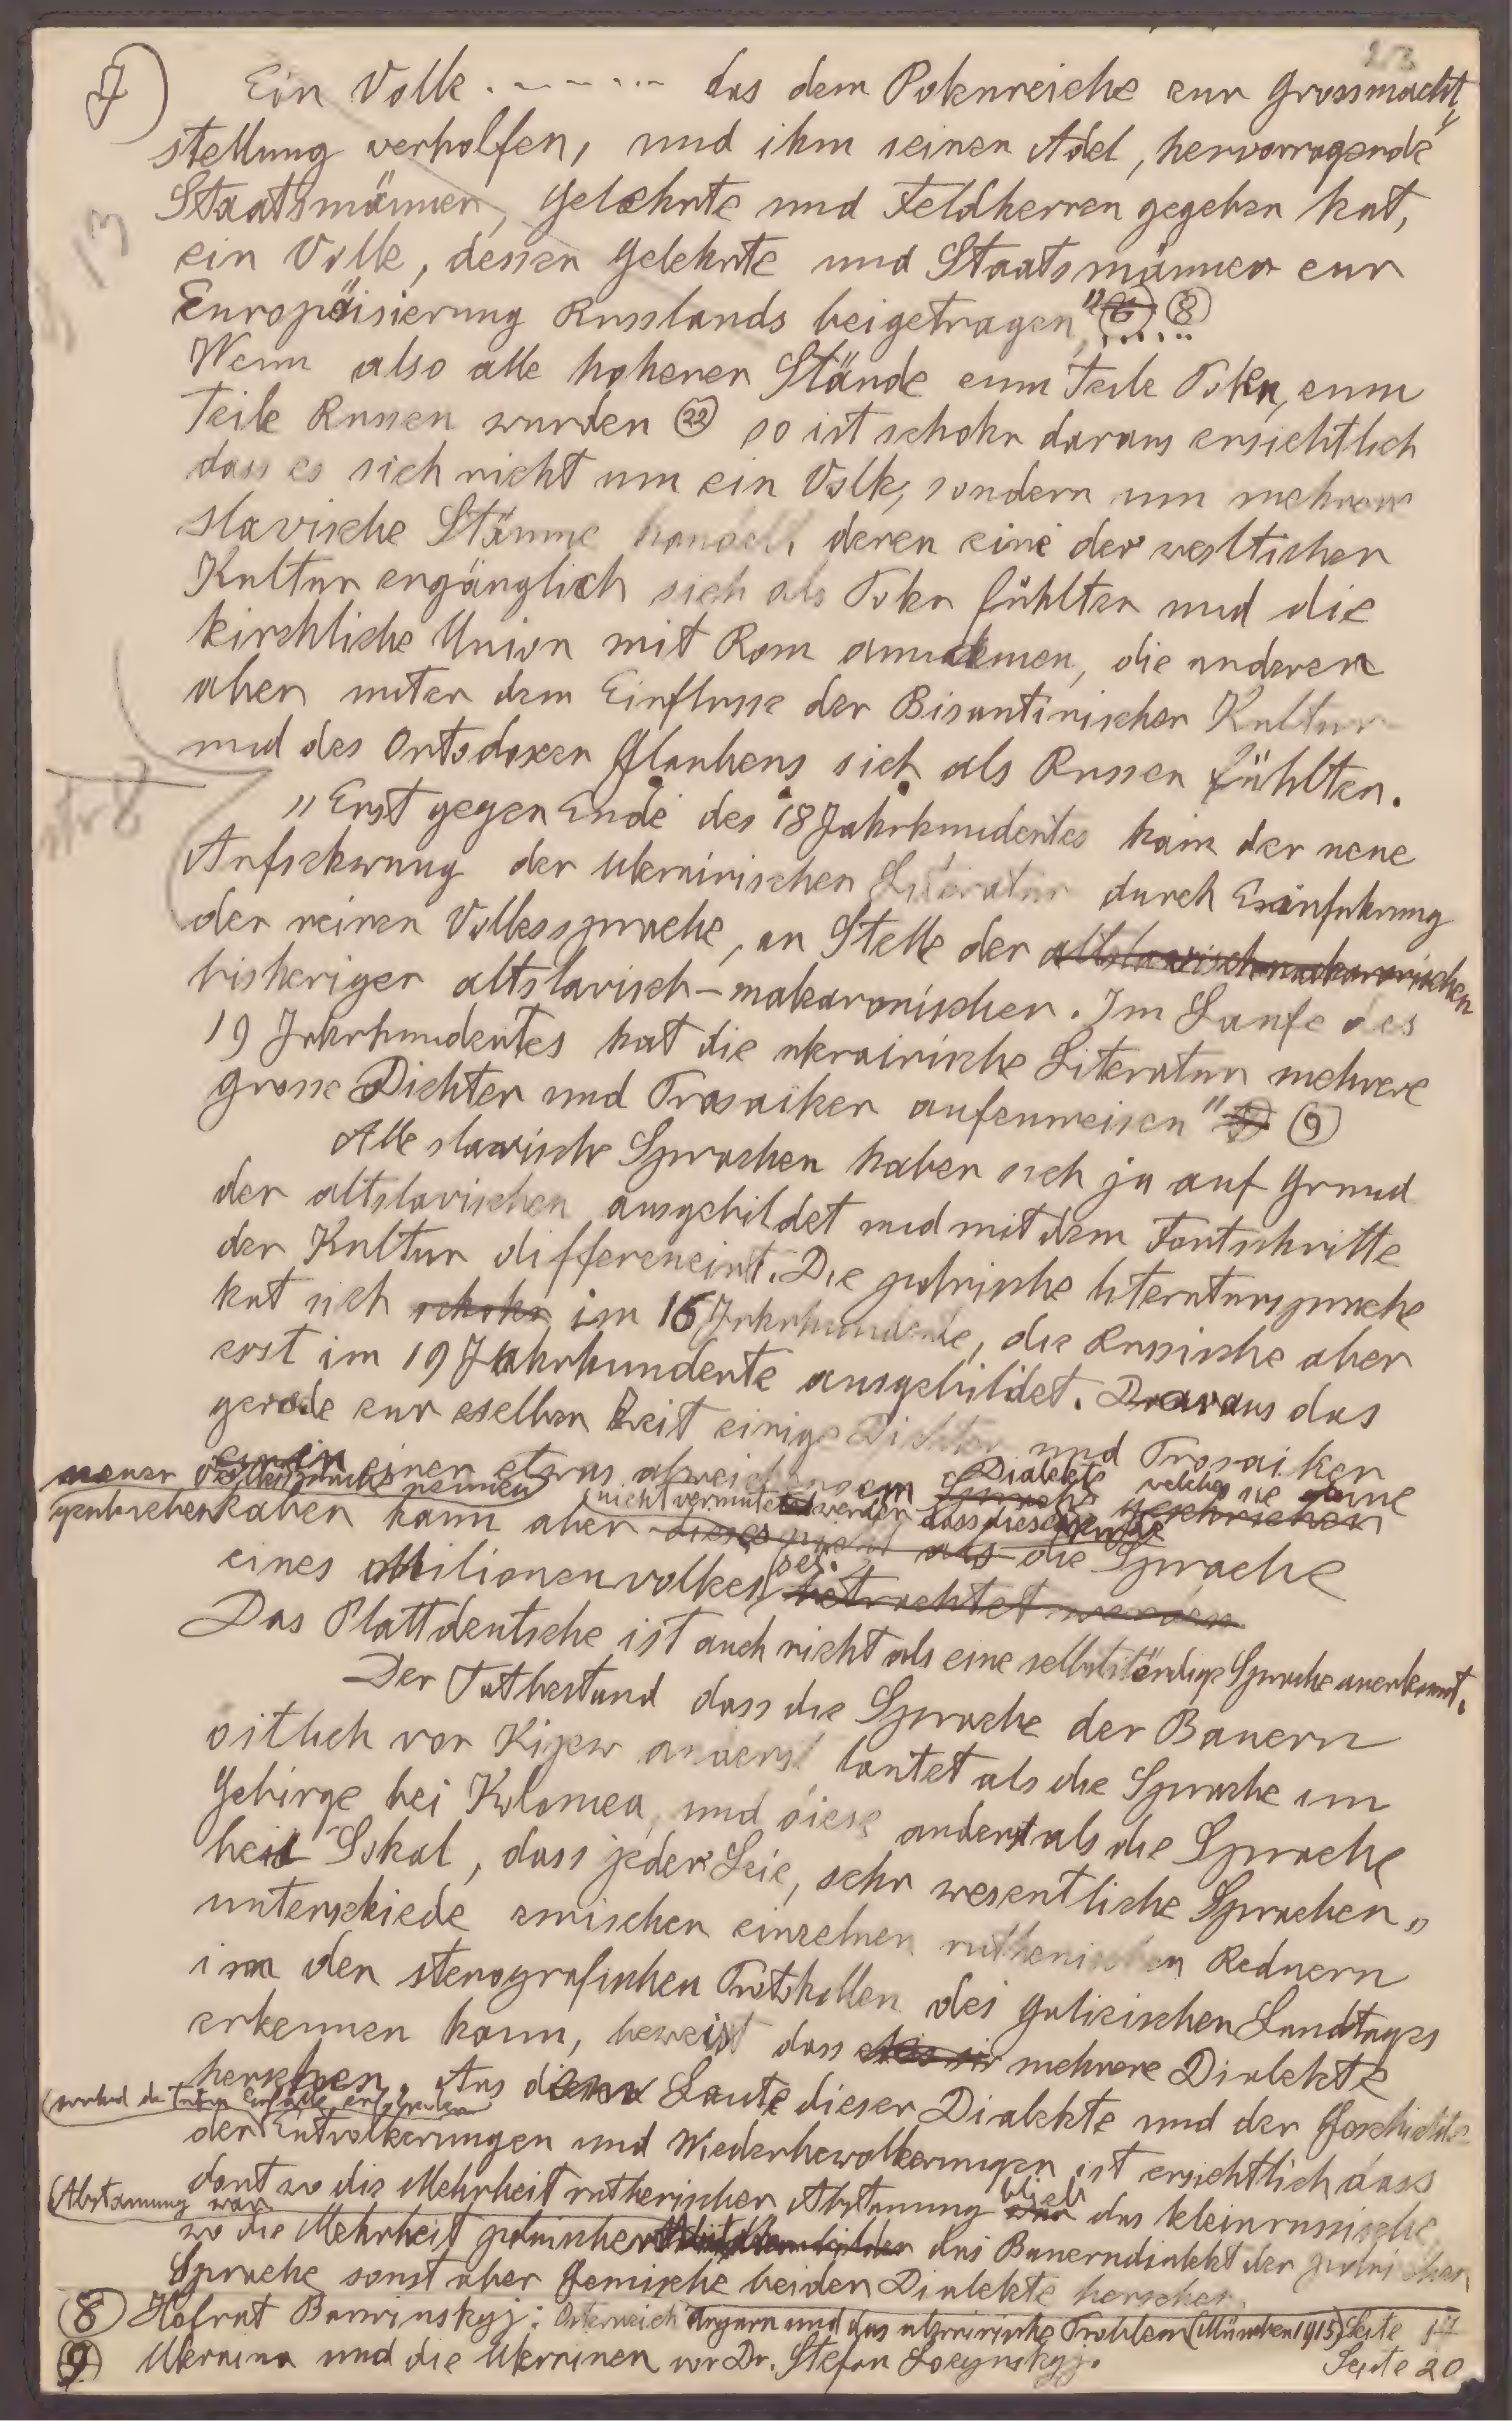 7)
23
Ein Volk . - - - - ... das dem Polenreiche zur Grossmacht„
stellung verholfen, und ihm seinen Adel, hervorragende
Staatsmänner, Gelehrte und Feldherren gegeben hat,
ein Volk, dessen Gelehrte und Staatsmänner zur
Europäisierung Russlands beigetragen," (8) .....
Wenn also alle hoheren Stände zum Teile Polen, zum
Teile Russen wurden (22) so ist schohn daraus ersichtlich
dass es sich nicht um ein Volk, sondern um mehrere
slavische Stämme handelt, deren eine der westlichen
Kultur zugänglich sich als Polen fühlten und die
kirchliche Union mit Rom annahmen, die anderen
aber unter dem Einflusse der Bisantinischen Kultur
und des Ortodoxen Glaubens sich als Russen fühlten.
„Erst gegen Ende des 18 Jahrhundertes kam der neue
Aufschwung der Ukrainischen Literatur durch Einfuhrung
der reinen Volkssprache, an Stelle der altslavisch makaronischen
bisherigen altslavisch-makaronischen. Im Laufe des
19 Jahrhundertes hat die ukrainische Literatur mehrere
grosse Dichter und Prosaiker aufzuweisen" (9)
Alle slavische Sprachen haben sich ja auf Grund
der altslavischen ausgebildet und mit dem Fortschritte
der Kultur differenzirt. Die polnische literatursprache
hat sich schohn im 16 Jahrhunderte, die Russische aber
erst im 19 Jahrhunderte ausgebildet. Daraus das
gerade zur eselben Zeit einige Dichter und Prosaiker
in einer etwas abweichendem Sprache Dialekte welches sie eine
neuer Volkssprache nennen
geschrieben haben kann aber dieses nicht als nicht vermutet werden dass dieses die Sprache geschrieben
eines Milionenvolkes sei. betrachtet werden
Das Plattdeutsche ist auch nicht als eine selbstständige Sprache anerkannt.
Der Tatbestand dass die Sprache der Bauern
östlich von Kijew anders lautet als die Sprache im
Gebirge bei Kolomea, und diese anderst als die Sprache
bei Sokal, dass jeder Leie, sehr wesentliche Sprachen„
unterschiede zwischen einzelnen ruthenischen Rednern
im den stenografischen Protokollen des galizischen Landtages
erkennen kann, beweist dass mehrere Dialekte
herschen. Aus dem Laute dieser Dialekte und der Geschichte
der Entvolkerungen und Wiederbevolkerungen ist ersichtlich dass
dort wo die Mehrheit ruthenischer Abstamung war blieb das kleinrussische,
(Abstammung war
wo die Mehrheit polnischer das Bauerndialekt der polnischen
Sprache sonst aber Gemische beider Dialekte herschen.
(8) Hofrat Barwinskyj: Österreich Ungarn und das ukrainische Problem (München 1915) Seite 17
(9) Ukraina und die Ukrainen von Dr. Stefan Tomaszewskyj. Seite 20